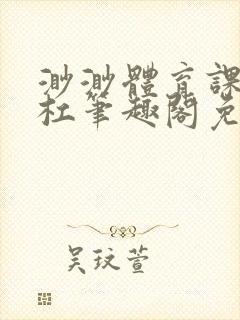 渺渺體育課
杜笔趣閣免
吴玟萱